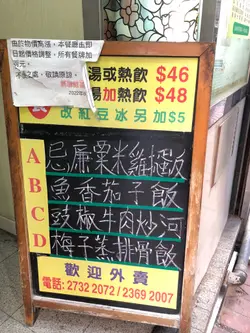 由於物價高漲，本餐廳由即
日起價格調整，所有餐牌加
元。
之處，敬請原諒。
湯或熱飲 $46
加熱飲 $48
改紅豆冰另加$5
A 忌廉粟米雞扒飯
B 魚香茄子飯
C 豉椒牛肉炒河
D 梅子蒸排骨飯
歡迎外賣
電話: 2732 2072 / 2369 2007